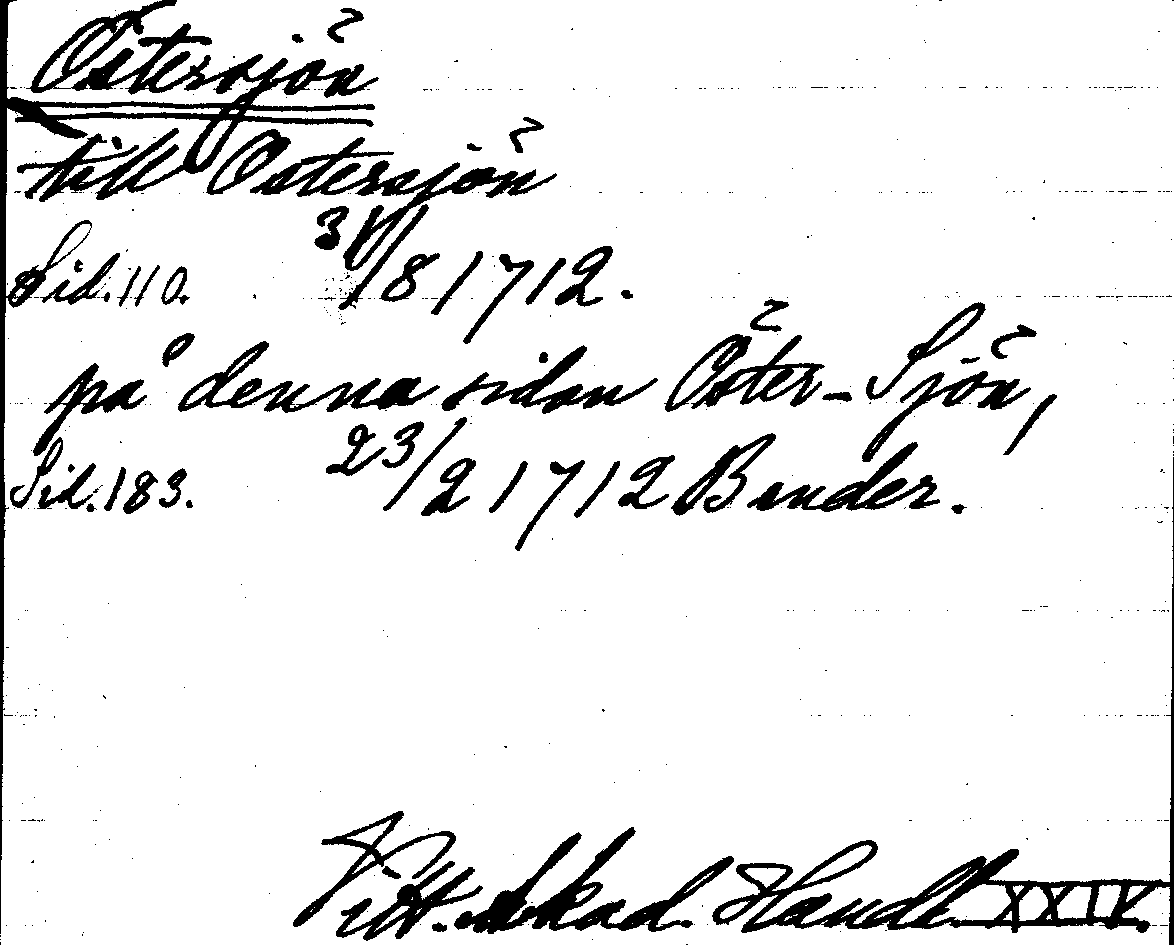 Östersjön
till Östersjön
Sid. 110. 31/8 1712.
på denna sidan Öster-Sjön,
Sid. 183. 23/2 1712 Bender.
Vitt. Akad. Handl. XXIV.